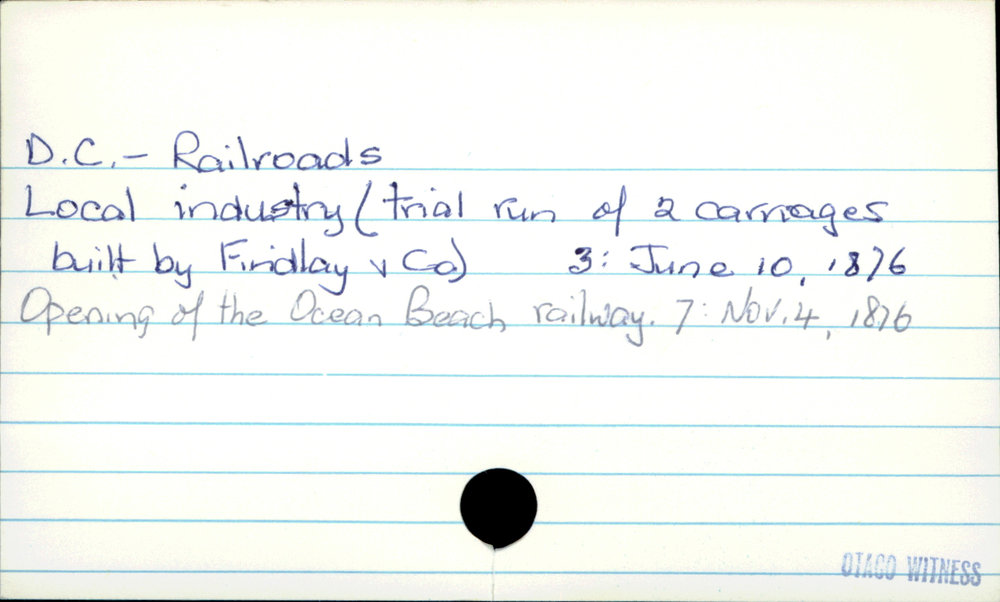 D.C. - Railroads
Local industry (trial run of 2 carriages
built by Findlay & Co) 3: June 10, 1876
Opening of the Ocean Beach railway. 7: Nov. 4, 1876
OTAGO WITNESS